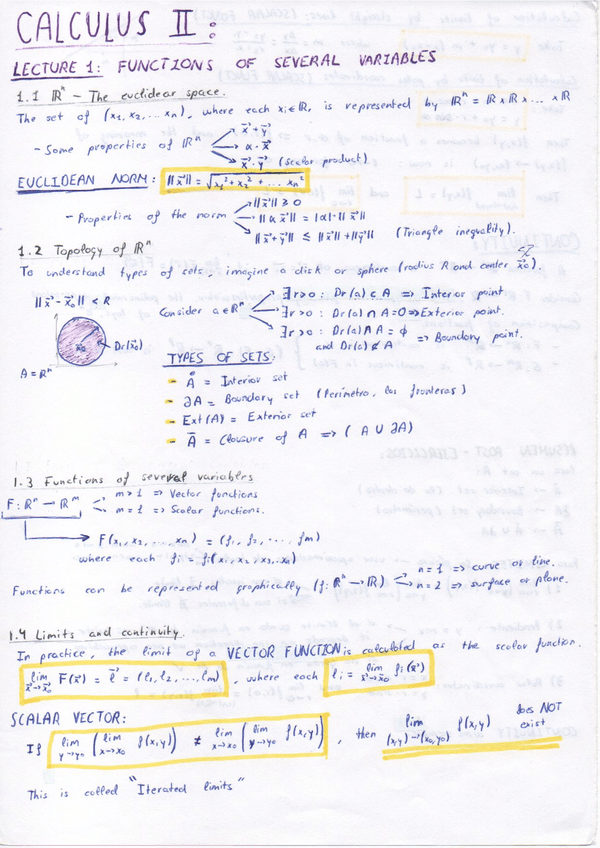 CALCULUS II:
LECTURE 1: FUNCTIONS OF SEVERAL VARIABLES
1.1 ℝⁿ - The euclidean space.
The set of (x₁, x₂, ... xₙ), where each xᵢ∈ℝ, is represented by ℝⁿ = ℝ x ℝ x ... x ℝ
- Some properties of ℝⁿ
x⃗ + y⃗
α · x⃗
x⃗ · y⃗ (scalar product)
EUCLIDEAN NORM: ||x⃗|| = √x₁² + x₂² + ... xₙ²
- Properties of the norm
||x⃗|| ≥ 0
||α x⃗|| = |α| · ||x⃗||
||x⃗ + y⃗|| ≤ ||x⃗|| + ||y⃗|| (Triangle inequality).
1.2 Topology of ℝⁿ
To understand types of sets, imagine a disk or sphere (radius R and center x⃗₀).
||x⃗ - x⃗₀|| < R
x₀
Dr(x⃗₀)
A = ℝⁿ
Consider a∈ℝⁿ
∃r>0 : Dr(a) ⊂ A => Interior point
∃r>0 : Dr(a) ∩ A = 0 => Exterior point.
∃r>0 : Dr(a) ∩ A = ϕ
and Dr(a) ⊄ A => Boundary point.
TYPES OF SETS:
- Å = Interior set
- ∂A = Boundary set (Perímetro, las fronteras)
- Ext(A) = Exterior set
- A̅ = Clousure of A => (A ∪ ∂A)
1.3 Functions of several variables
F: ℝⁿ → ℝᵐ
m > 1 => Vector functions
m = 1 => Scalar functions.
F(x₁, x₂, ..., xₙ) = (f₁, f₂, ..., fm)
where each fᵢ = fᵢ(x₁, x₂, x₃, ..xₙ)
Functions can be represented graphically (f: ℝⁿ → ℝ)
n = 1 => curve or line.
n = 2 => surface or plane.
1.4 Limits and continuity
In practice, the limit of a VECTOR FUNCTION is calculated as the scalar function.
lim x⃗→x⃗₀ F(x⃗) = l⃗ = (l₁, l₂, ..., lm), where each lᵢ = lim x⃗→x⃗₀ fᵢ(x⃗)
SCALAR VECTOR:
If lim y→y₀ (lim x→x₀ f(x,y)) ≠ lim x→x₀ (lim y→y₀ f(x,y)), then lim (x,y)→(x₀,y₀) f(x,y) does NOT exist
This is called "Iterated limits"